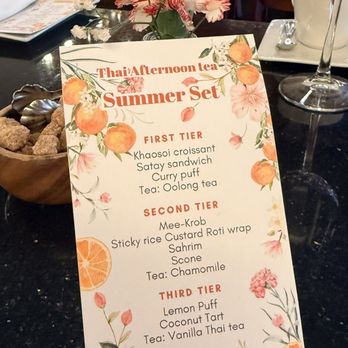 Thai Afternoon tea
Summer Set
FIRST TIER
Khaosoi croissant
Satay sandwich
Curry puff
Tea: Oolong tea
SECOND TIER
Mee-Krob
Sticky rice Custard Roti wrap
Sahrim
Scone
Tea: Chamomile
THIRD TIER
Lemon Puff
Coconut Tart
Tea: Vanilla Thai tea